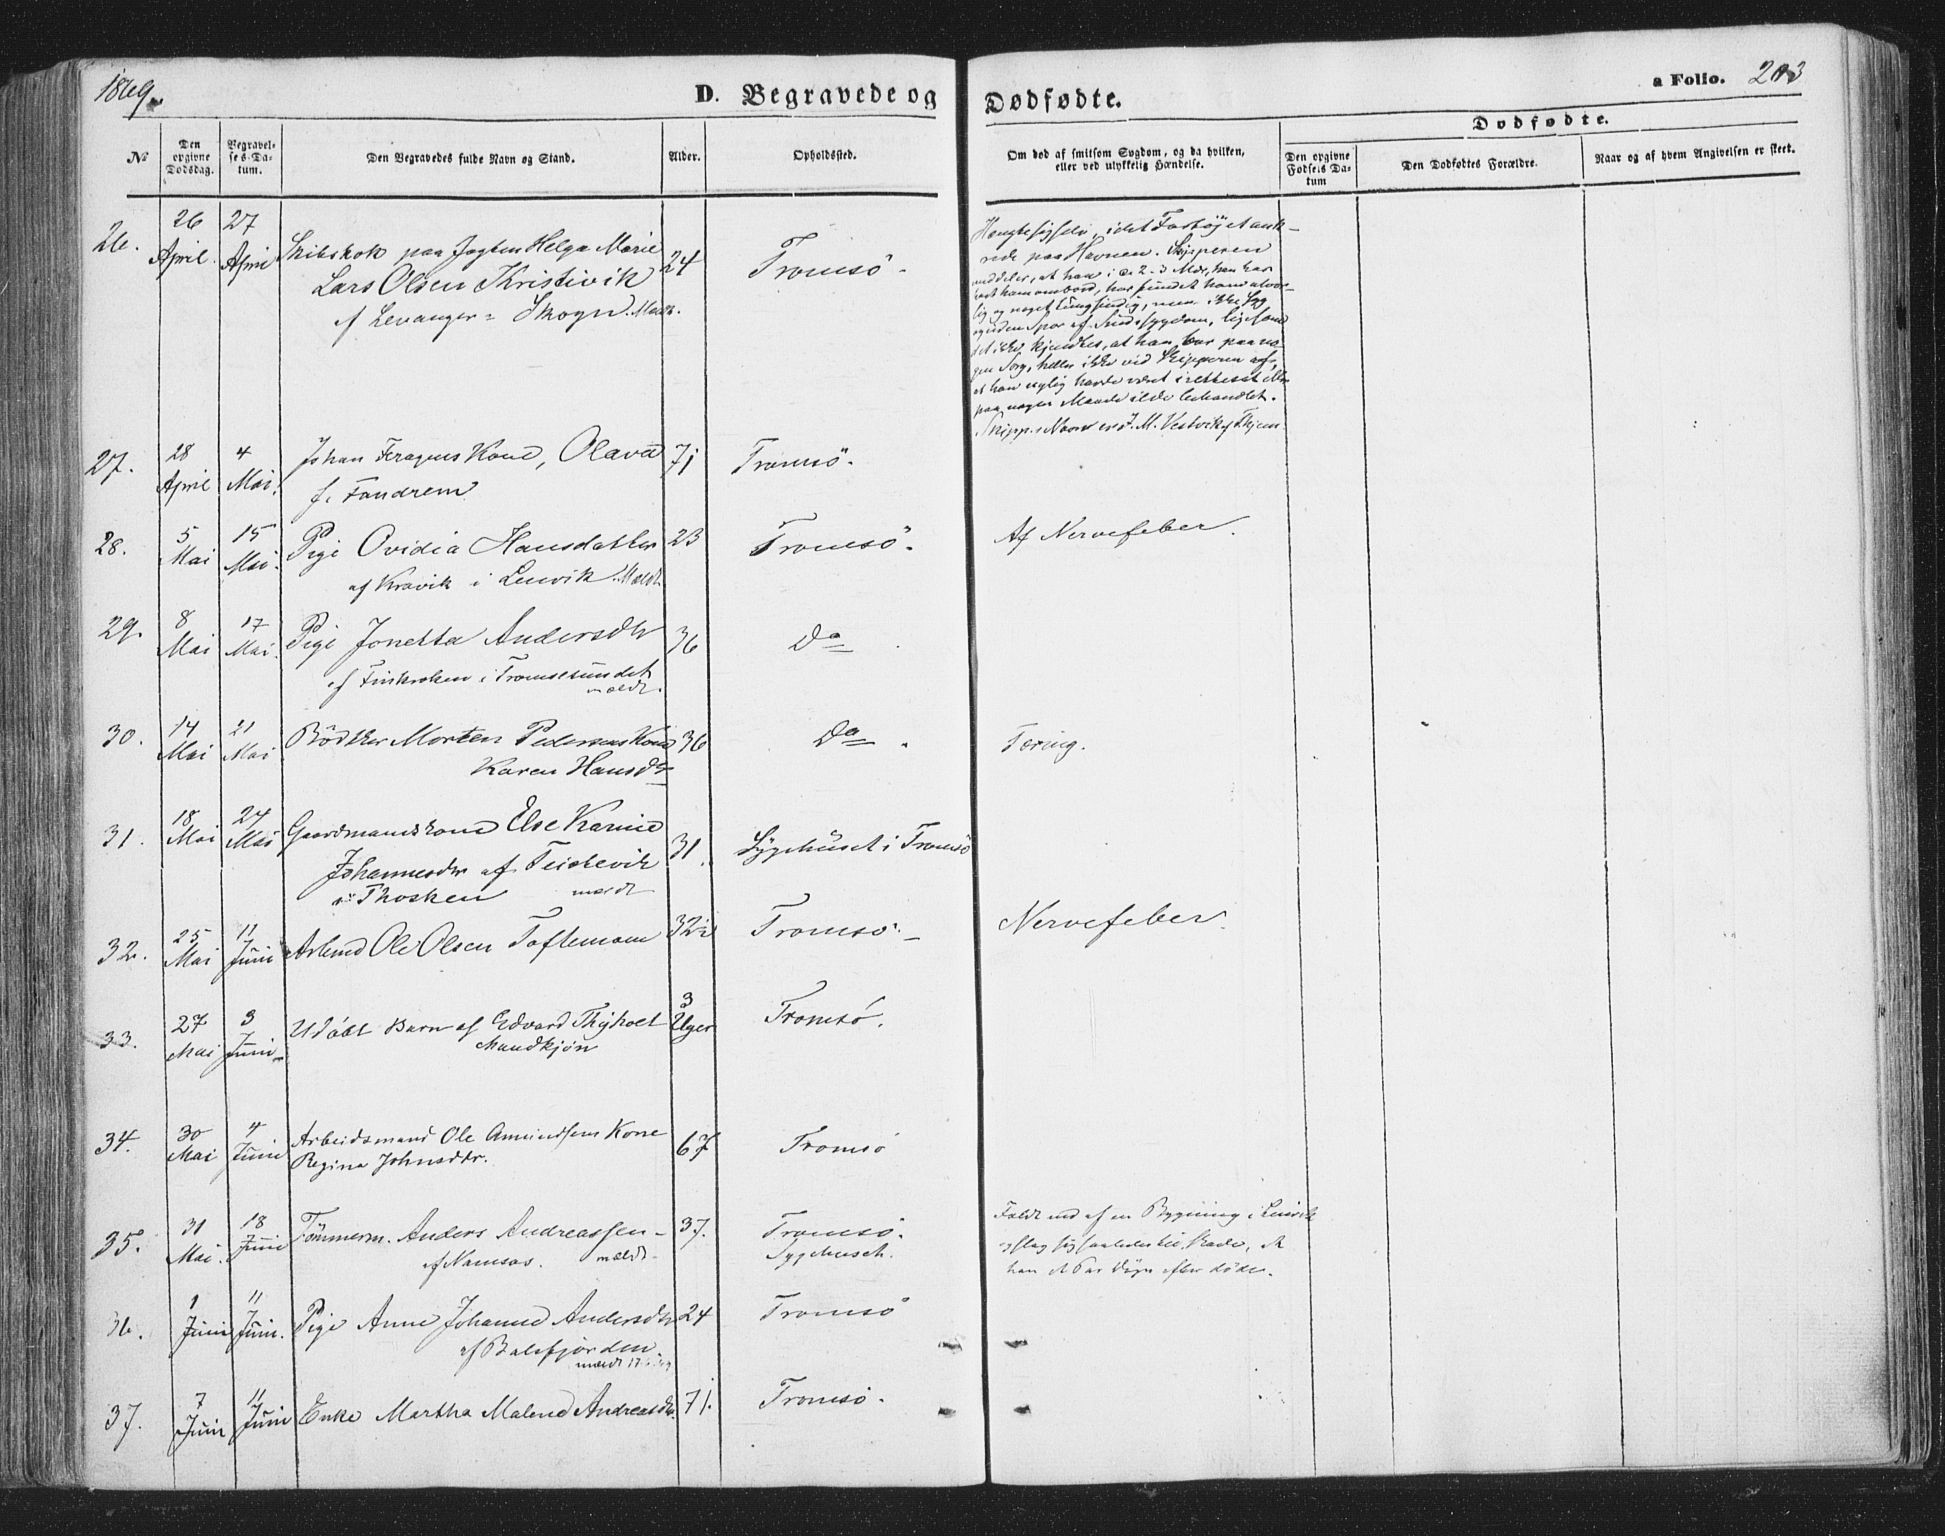 1869.
D. Begravede og Dødfødte.
a Folio. 203
№
Den opgivne Dødsdag.
Begravelses-Datum.
Den Begravedes fulde Navn og Stand.
Alder.
Opholdssted.
Om død af smitsom Sygdom, og da hvilken, eller ved ulykkelig Hændelse.
Dødfødte.
Den opgivne Fødsels Datum
Den Dødfødtes Forældre.
Naar og af hvem Angivelsen er skeet.
26.
26 April.
27 April
Skibskok paa Jagten Helga Marie
Lars Olsen Kristivik
af Levanger = Skogn. Meldt.
24
Tromsö.
Hængte sig selv, idet Fartøjet ank-
rede paa Havnen. Skipperen
meddeler, at han i ca 2-3 Mdr, han har
havt ham ombord, har fundet ham alvor-
lig og noget tungsindig, men ikke syg
og uden Spor af Sindssygdom, ligesom
det ikke kjendtes, at han bar paa no-
gen Sorg, heller ikke ved Skipperen af,
at han nylig havde været irettesat eller
paa nogen Maade ilde behandlet.
Skipp.s Navn er J. M. Vestvik af
27.
28 April
4 Mai.
Johan Kone, Olava
f. Fandrem
71
Tromsö.
28.
5 Mai
15 Mai.
Pige Ovidia Hansdatter
af Kravik i Lenvik. Meldt
23
Tromsö.
Af Nervefeber.
29.
8 Mai
17 Mai.
Pige Jonetta Andersdtr
af Finkroken i Tromsesundet
meldt.
36
Do
30.
14 Mai
21 Mai
Bödker Morten Pedersens Kone
Karen Hansdtr
36
Do.
Tæring.
31.
18 Mai
24 Mai
Gaardmandskone Else Karine
Johannesdtr af Teistevik
i Thosken meldt
31.
Sygehuset i Tromsö
32.
25 Mai
11 Juni
Arbmd Ole Olsen Toftemoen
32½
Tromsö.
Nervefeber.
33.
27 Mai
3 Juni
Udöbt Barn af Edvard Thyholt
Mandkjön
3 Uger
Tromsö.
34.
30 Mai
4 Juni
Arbeidsmand Ole Amundsens Kone
Regina Johnsdtr.
67
Tromsö
35.
31 Mai.
18 Juni
Tömmerm. Anders Andreassen
af Namsos. meldt
37.
Tromsö.
Sygehuset.
Faldt ned af en Bygning i Lenvik
og slog sig saaledes til Skade, at
han et Par Dage efter döde.
36.
1 Juni
11 Juni.
Pige Anne Johanne Andersdtr
af Balsfjorden.
meldt
24
Tromsö
37.
7 Juni
11 Juni
Enke Martha Malene Andreasdtr.
71.
Tromsö.